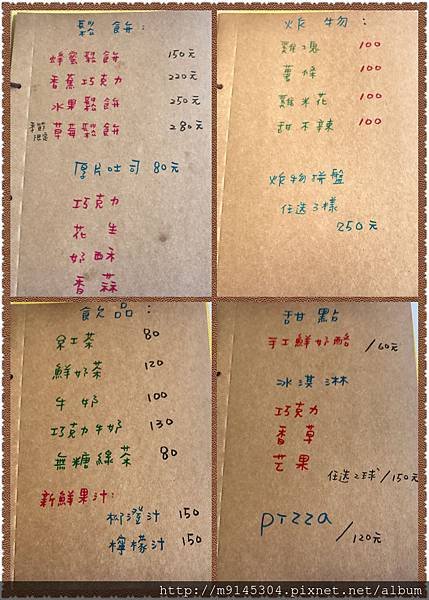 鬆餅:
蜂蜜鬆餅 150元
香蕉巧克力 220元
水果鬆餅 250元
季節限定 草莓鬆餅 280元
厚片吐司 80元
巧克力
花生
奶酥
香蒜
炸物:
雞塊 100
薯條 100
雞米花 100
甜不辣 100
炸物拼盤
任選3樣
250元
飲品:
紅茶 80
鮮奶茶 120
牛奶 100
巧克力牛奶 130
無糖綠茶 80
新鮮果汁:
柳澄汁 150
檸檬汁 150
甜點:
手工鮮奶酪 /60元
冰淇淋
巧克力
香草
芒果
任選2球/150元
pizza
/120元
http://m9145304.pixnet.net/album